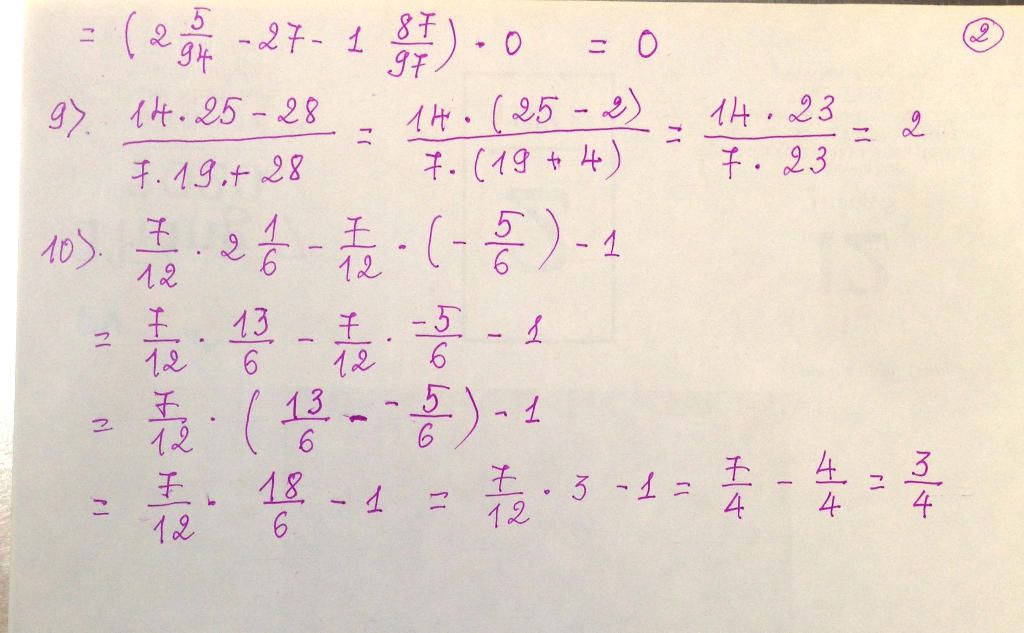 = (2 5/94 - 27 - 1 87/97) · 0 = 0
②
9). (14·25 - 28)/(7·19 + 28) = (14·(25 - 2))/(7·(19 + 4)) = (14·23)/(7·23) = 2
10). 7/12 · 2 1/6 - 7/12 · (- 5/6) - 1
= 7/12 · 13/6 - 7/12 · -5/6 - 1
= 7/12 · (13/6 - - 5/6) - 1
= 7/12 · 18/6 - 1 = 7/12 · 3 - 1 = 7/4 - 4/4 = 3/4